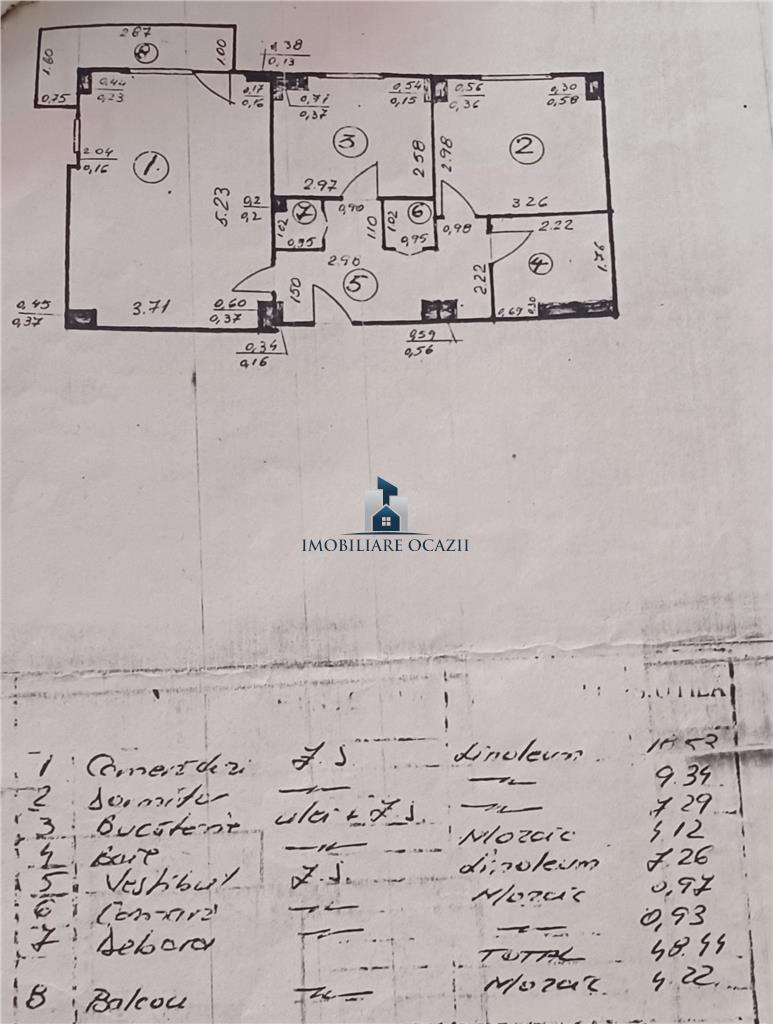 2.87
8
1.60
1.00
0,75
0,38
0,13
0,44
0,23
0,17
0,16
0,71
0,37
0,54
0,15
0,56
0,36
0,30
0,58
2.04
0,16
1
3
2
2.58
2.98
5.23
2.97
3.26
0,2
0,2
7
102
0,95
0,90
110
102
6
0,95
0,98
2.22
1.76
4
2.90
5
150
2.22
0,69
0,30
0,45
0,37
3.71
0,60
0,37
0,34
0,16
0,59
0,56
IMOBILIARE OCAZII
S.UTILA
1 Camera de zi Z.S. Linoleum
2 Dormitor 9.34
3 Bucătărie ulei + Z.S. 7.29
4 Baie Mozaic 4.12
5 Vestibul Z.S. Linoleum 7.26
6 Camară Mozaic 0,97
7 Debara 0,93
TOTAL 48.44
8 Balcou Mozaic 4.22